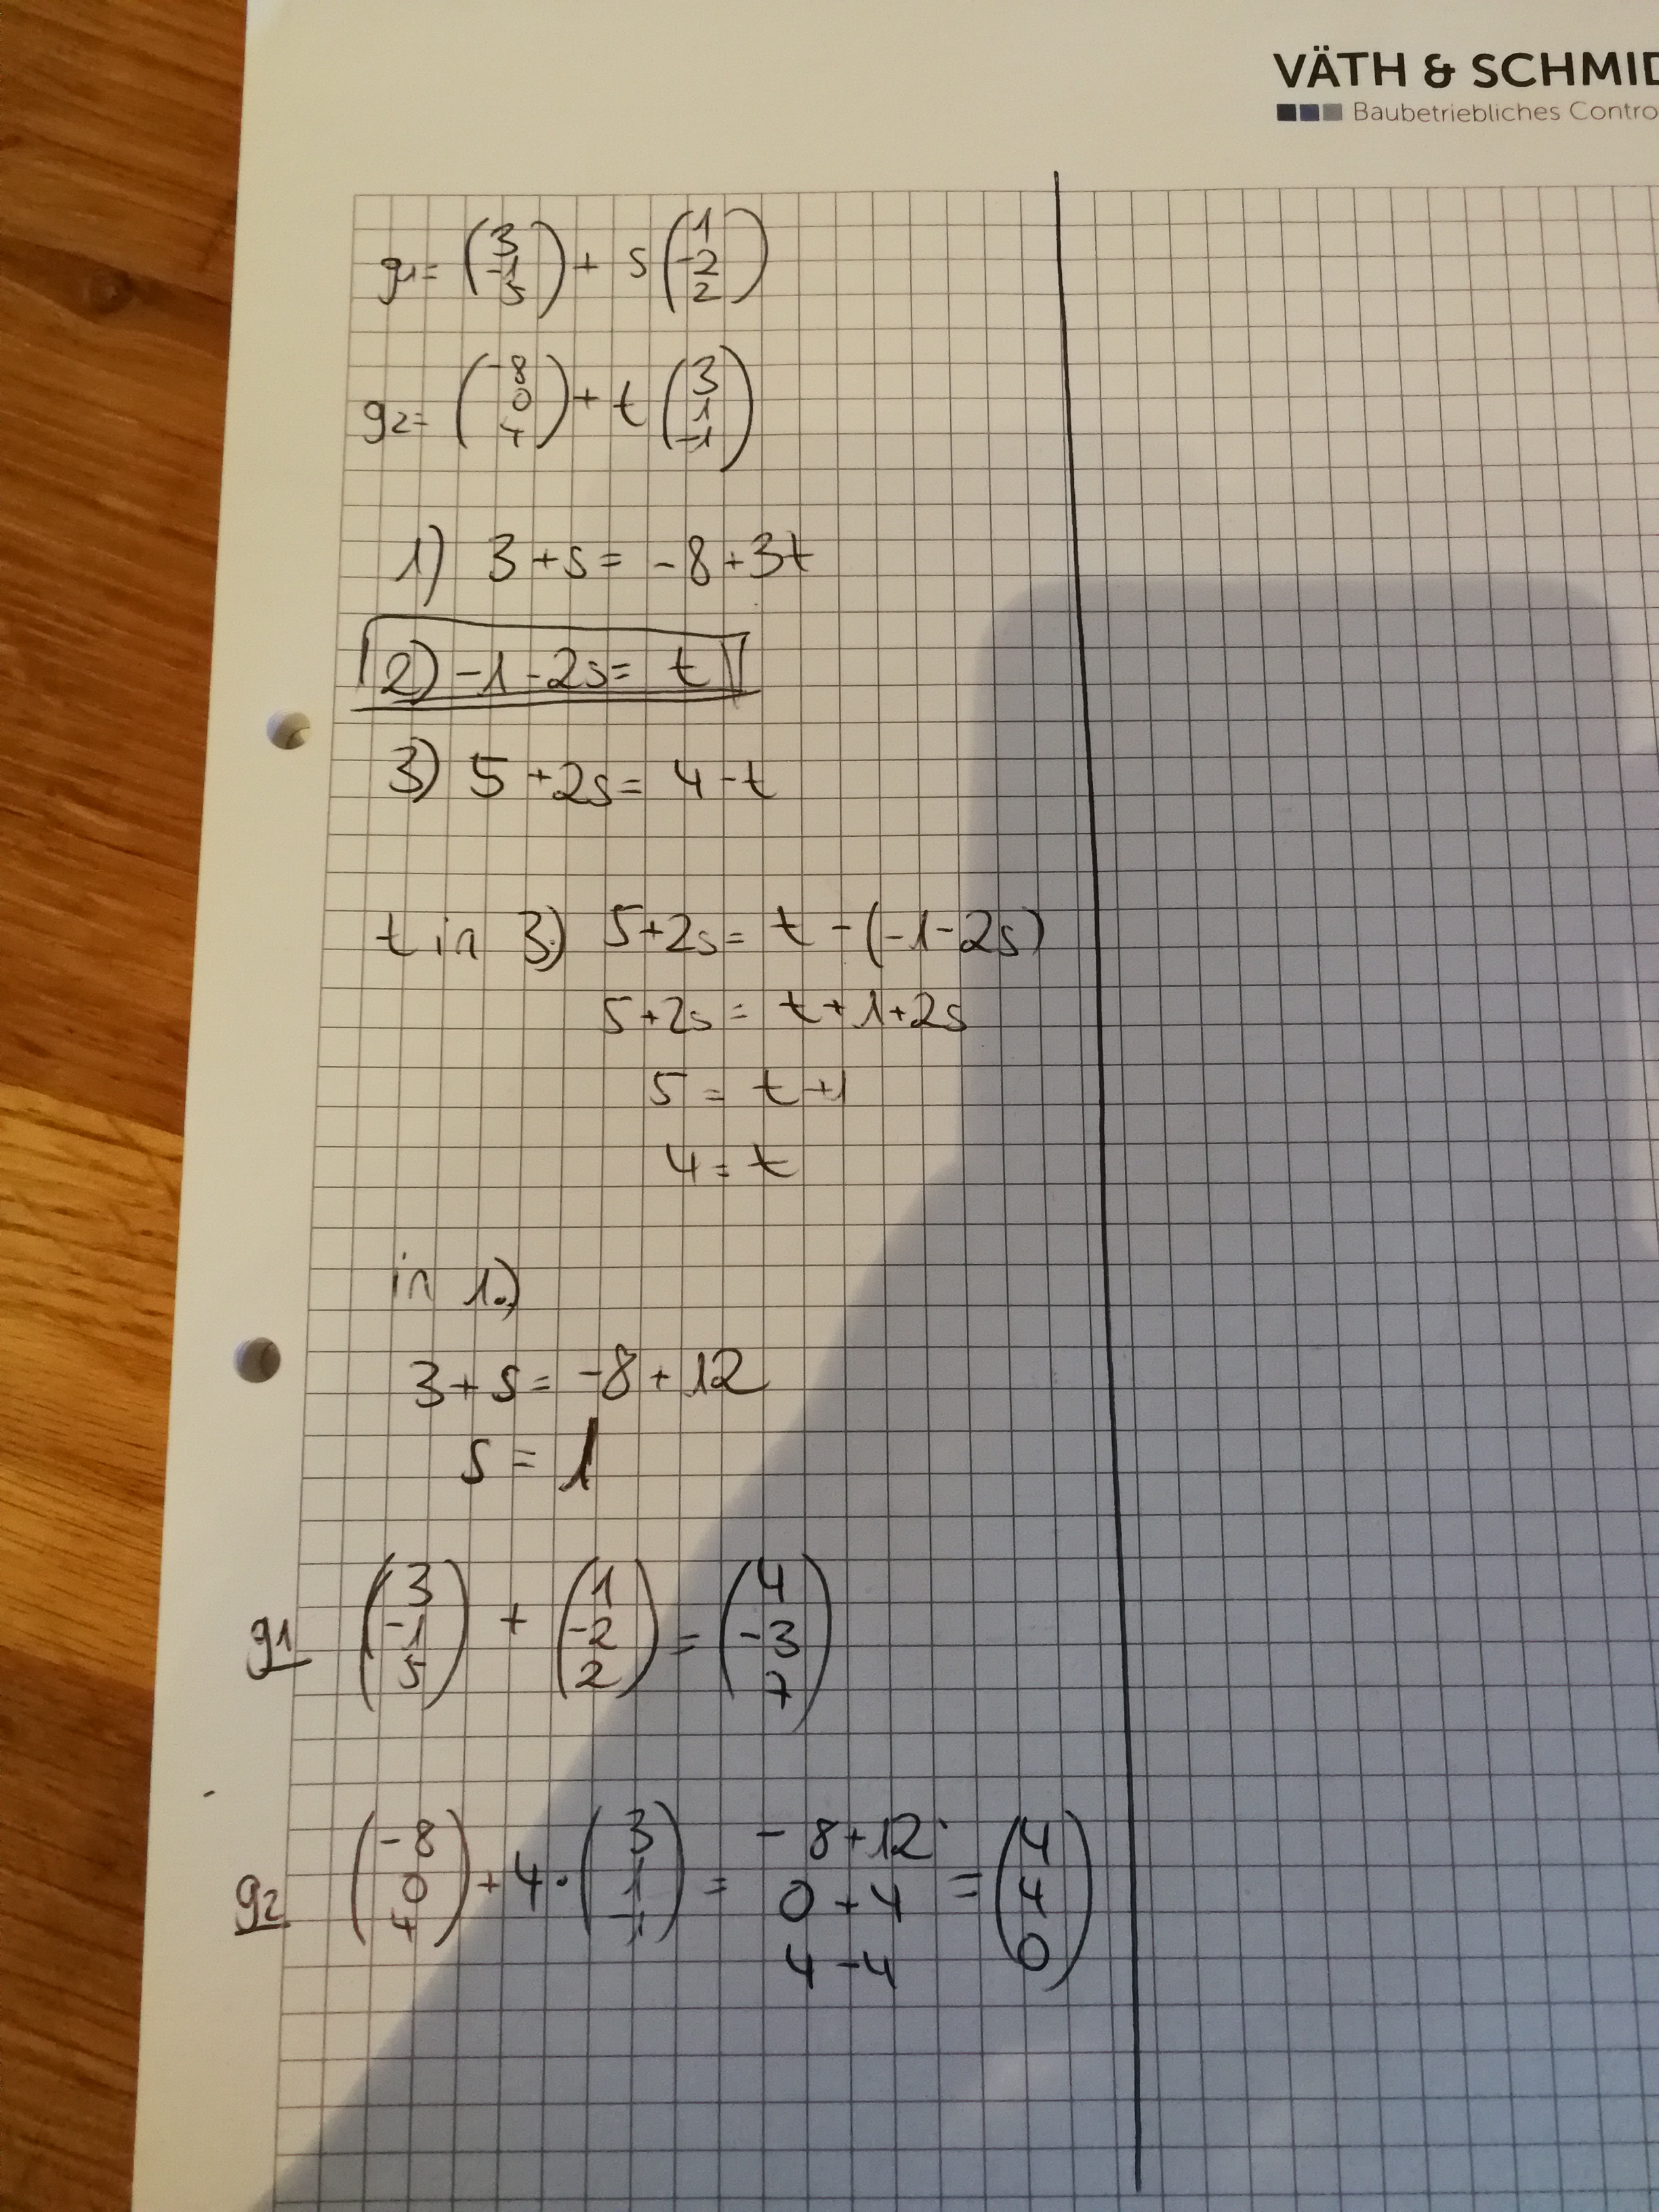 VÄTH & SCHMID
Baubetriebliches Contro
g1= (3 -1 5) + s (1 -2 2)
g2= (-8 0 4) + t (3 1 -1)
1) 3+s= -8+3t
2) -1-2s= t
3) 5+2s= 4-t
t in 3) 5+2s= t-(-1-2s)
5+2s= t+1+2s
5 = t+1
4=t
in 1.)
3+s= -8+12
s = 1
g1 (3 -1 5) + (1 -2 2) = (4 -3 7)
g2 (-8 0 4) +4·(3 1 -1) = -8+12 0+4 4-4 = (4 4 0)